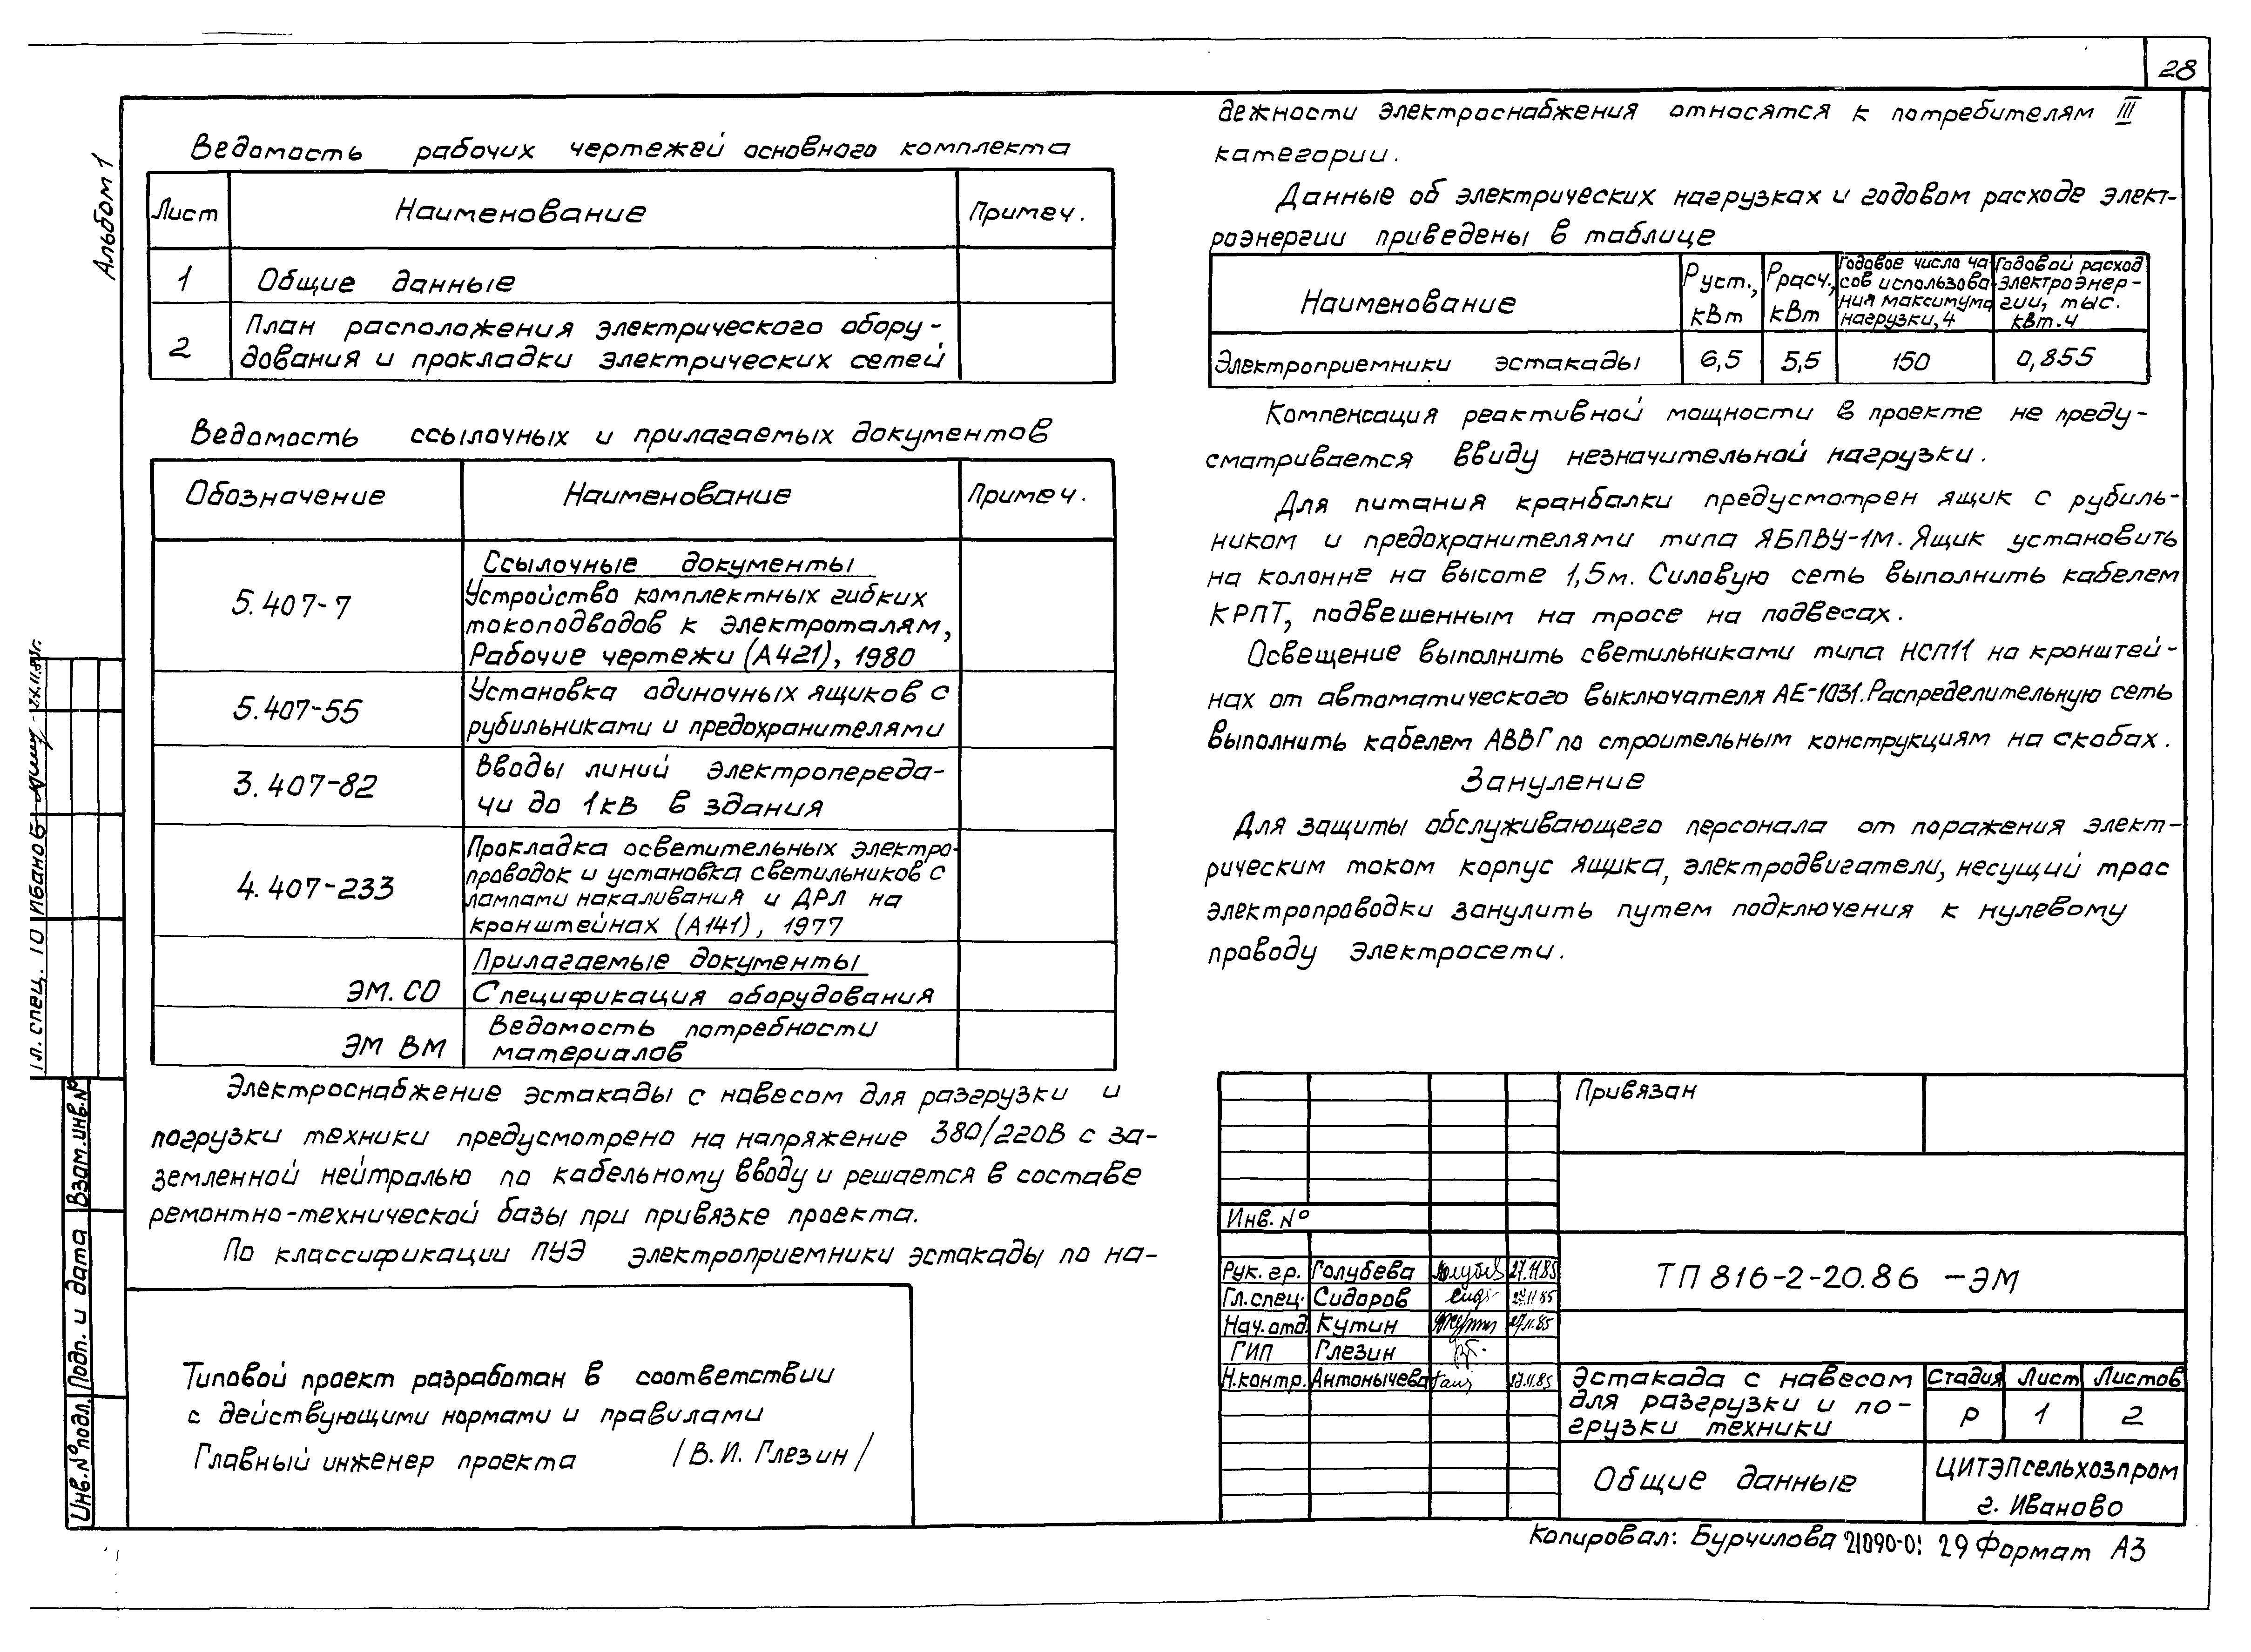 28
Альбом 1
Ведомость рабочих чертежей основного комплекта
Лист Наименование Примеч.
1 Общие данные
2 План расположения электрического обору-
дования и прокладки электрических сетей
Ведомость ссылочных и прилагаемых документов
Обозначение Наименование Примеч.
Ссылочные документы
5.407-7 Устройство комплектных гибких
токоподводов к электроталям,
Рабочие чертежи (А421), 1980
5.407-55 Установка одиночных ящиков с
рубильниками и предохранителями
3.407-82 Вводы линий электропереда-
чи до 1кВ в здания
4.407-233 Прокладка осветительных электро-
проводок и установка светильников с
лампами накаливания и ДРЛ на
кронштейнах (А141), 1977
Прилагаемые документы
ЭМ.СО Спецификация оборудования
ЭМ ВМ Ведомость потребности
материалов
Электроснабжение эстакады с навесом для разгрузки и
погрузки техники предусмотрено на напряжение 380/220В с за-
земленной нейтралью по кабельному вводу и решается в составе
ремонтно-технической базы при привязке проекта.
По классификации ПУЭ электроприемники эстакады по на-
Типовой проект разработан в соответствии
с действующими нормами и правилами
Главный инженер проекта /В.И. Глезин/
дежности электроснабжения относятся к потребителям III
категории.
Данные об электрических нагрузках и годовом расходе элект-
роэнергии приведены в таблице
Наименование Руст., кВт Ррасч., кВт Годовое число ча-сов использова-ния максимума нагрузки, ч Годовой расход электроэнер-гии, тыс. кВт.ч
Электроприемники эстакады 6,5 5,5 150 0,855
Компенсация реактивной мощности в проекте не преду-
сматривается ввиду незначительной нагрузки.
Для питания кранбалки предусмотрен ящик с рубиль-
ником и предохранителями типа ЯБПВУ-1М. Ящик установить
на колонне на высоте 1,5м. Силовую сеть выполнить кабелем
КРПТ, подвешенным на тросе на подвесах.
Освещение выполнить светильниками типа НСП11 на кронштей-
нах от автоматического выключателя АЕ-1031. Распределительную сеть
выполнить кабелем АВВГ по строительным конструкциям на скобах.
Зануление
Для защиты обслуживающего персонала от поражения элект-
рическим током корпус ящика, электродвигатели, несущий трос
электропроводки занулить путем подключения к нулевому
проводу электросети.
Привязан
Инв. №
Рук. гр. Голубева 27.11.85
Гл. спец. Сидоров 11.85
Нач. отд. Кутин 27.11.85
ГИП Глезин
Н.контр. Антонычева 27.11.85
ТП 816-2-20.86 -ЭМ
Эстакада с навесом
для разгрузки и по-
грузки техники
Стадия Лист Листов
Р 1 2
Общие данные
ЦИТЭПсельхозпром
г. Иваново
Копировал: Бурчилова 21090-01 29 Формат А3
Гл. спец. 10 Иванов
Взам.инв.№
Подп. и дата
Инв.№подл.